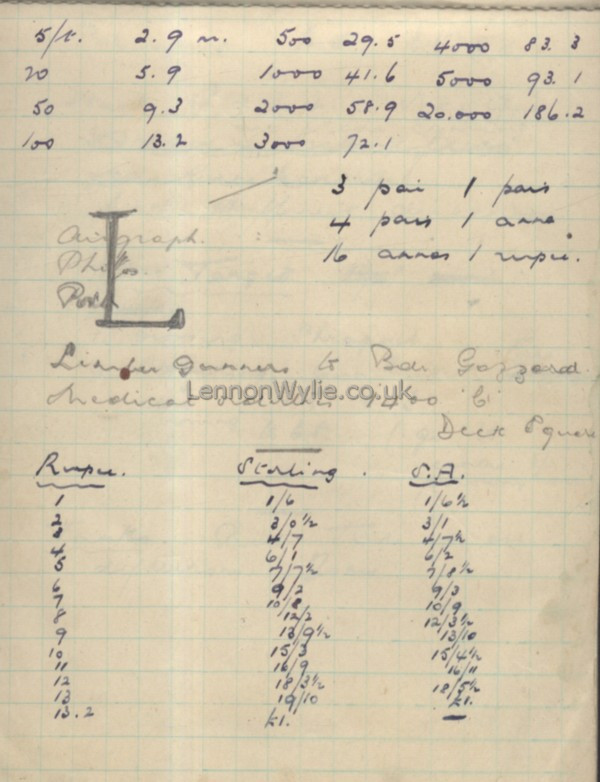 5/ft. 2.9 m. 500 29.5 4000 83.3
20 5.9 1000 41.6 5000 93.1
50 9.3 2000 58.9 20.000 186.2
100 13.2 3000 72.1
3 pai 1 pais
4 pais 1 anna
16 annas 1 rupee.
L
Airgraph.
Photos.
Limber Gunners to Bdr Gozzard.
LennonWylie.co.uk
Medical 1400
Deck Square
Rupee. Sterling. S.A.
1 1/6 1/6½
2 3/0½ 3/1
3 4/7 4/7½
4 6/1 6/2
5 7/7½ 7/8½
6 9/2 9/3
7 10/8 10/9
8 12/2 12/3½
9 13/9½ 13/10
10 15/3 15/4½
11 16/9 16/11
12 18/3½ 18/5½
13 19/10 £1.
13.2 £1. —